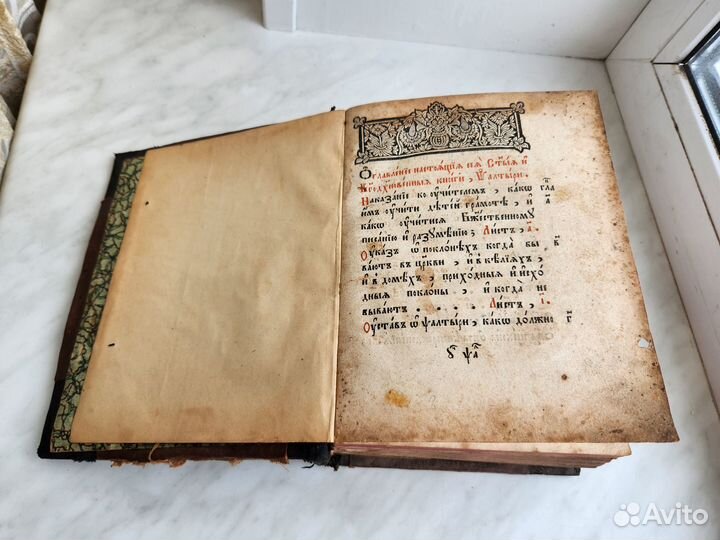 Ѡглавленїе настоѧщїѧ сеѧ Ст҃ыѧ и
Бг҃одх҃новенныѧ книги, Ѱалтыри.
Наказанїе ко оучителемъ, какѡ
имъ оучити дѣтїй грамотѣ, и
какѡ оучитисѧ Бжⷭ҇твенномꙋ
писанїю и разꙋмѣнїю: Листъ, а҃.
Оуказъ ѡ поклонѣхъ когда бы
ваютъ въ цр҃кви, и в келїѧхъ,
и в домѣхъ, приходныѧ и исхо
дныѧ поклоны, и когда не
бываютъ . . . . . Листъ, і҃.
Оуставъ ѡ ѱалтыри, какѡ должно
Avito